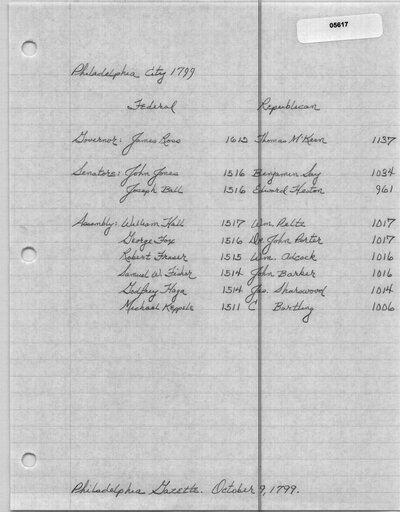 05617
Philadelphia City 1799
Federal Republican
Governor: James Ross 1612 Thomas McKean 1137
Senators: John Jones 1516 Benjamin Say 1034
Joseph Ball 1516 Edward Heston 961
Assembly: William Hall 1517 Wm. Reltz 1017
George Fox 1516 Dr John Porter 1017
Robert Fraser 1515 Wm. Adcock 1016
Samuel W. Fisher 1514 John Barker 1016
Godfrey Haga 1514 Jas. Sharswood 1014
Michael Keppele 1511 C Bartling 1006
Philadelphia Gazette. October 9, 1799.